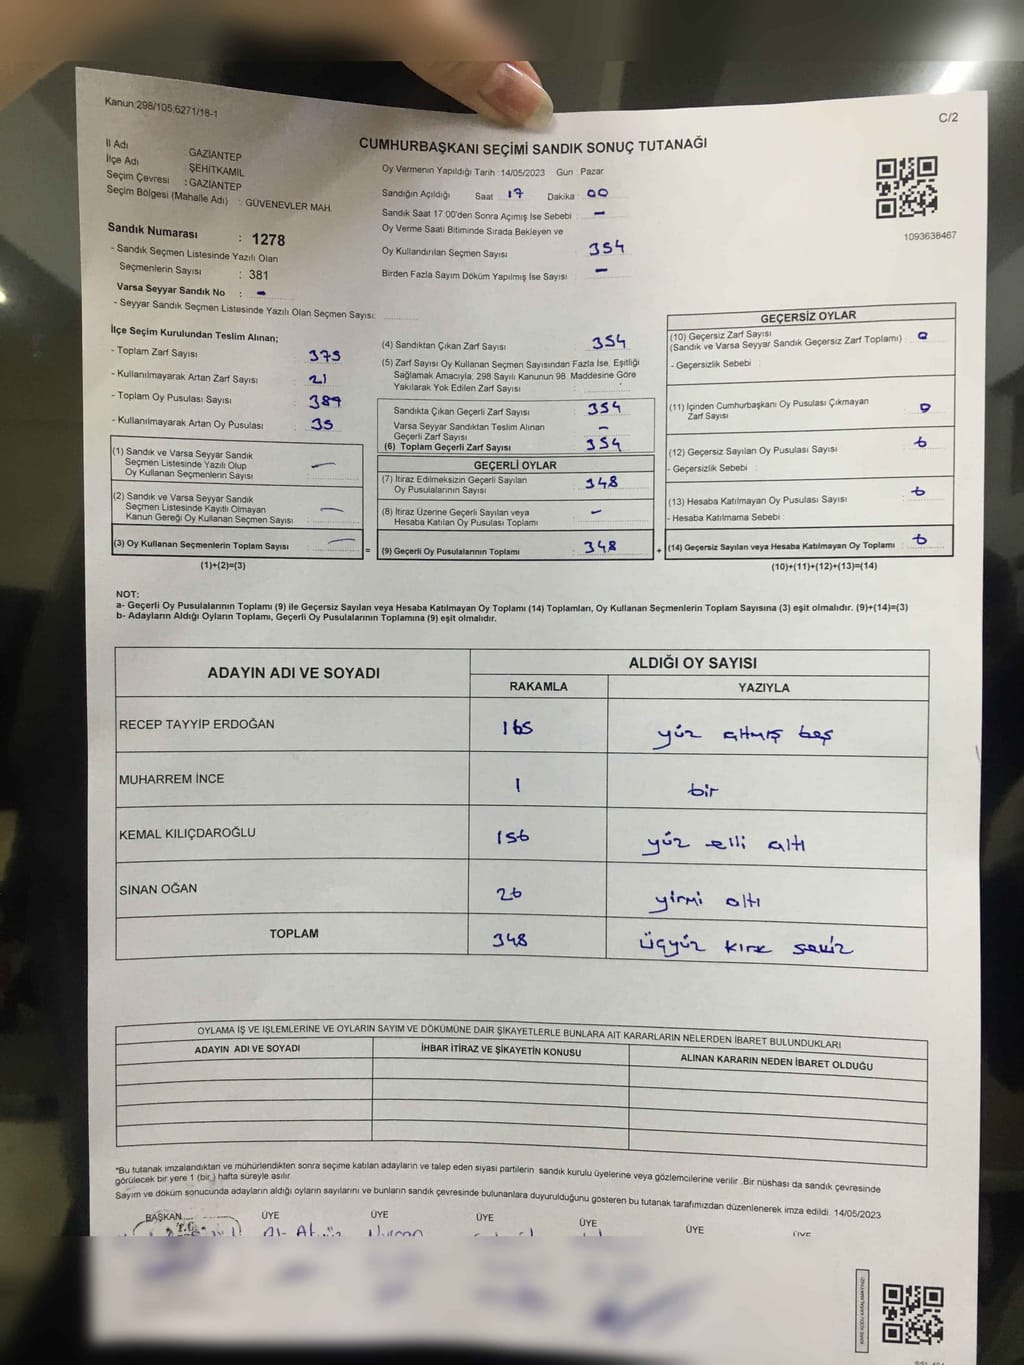 Kanun:298/105,6271/18-1
C/2
CUMHURBAŞKANI SEÇİMİ SANDIK SONUÇ TUTANAĞI
İl Adı : GAZİANTEP
İlçe Adı : ŞEHİTKAMİL
Seçim Çevresi : GAZİANTEP
Seçim Bölgesi (Mahalle Adı) : GÜVENEVLER MAH.
Oy Vermenin Yapıldığı Tarih :14/05/2023 Gün Pazar
Sandığın Açıldığı Saat : 17 Dakika : 00
Sandık Saat 17 00'den Sonra Açımış İse Sebebi : -
Oy Verme Saati Bitiminde Sırada Bekleyen ve
Oy Kullandırılan Seçmen Sayısı : 354
Birden Fazla Sayım Döküm Yapılmış İse Sayısı : -
1093638467
Sandık Numarası : 1278
- Sandık Seçmen Listesinde Yazılı Olan
Seçmenlerin Sayısı : 381
Varsa Seyyar Sandık No : -
- Seyyar Sandık Seçmen Listesinde Yazılı Olan Seçmen Sayısı:
İlçe Seçim Kurulundan Teslim Alınan;
- Toplam Zarf Sayısı : 375
- Kullanılmayarak Artan Zarf Sayısı : 21
- Toplam Oy Pusulası Sayısı : 389
- Kullanılmayarak Artan Oy Pusulası : 35
(1) Sandık ve Varsa Seyyar Sandık
Seçmen Listesinde Yazılı Olup
Oy Kullanan Seçmenlerin Sayısı : -
(2) Sandık ve Varsa Seyyar Sandık
Seçmen Listesinde Kayıtlı Olmayan
Kanun Gereği Oy Kullanan Seçmen Sayısı : -
(3) Oy Kullanan Seçmenlerin Toplam Sayısı : -
(1)+(2)=(3)
(4) Sandıktan Çıkan Zarf Sayısı : 354
(5) Zarf Sayısı Oy Kullanan Seçmen Sayısından Fazla İse, Eşitliği
Sağlamak Amacıyla; 298 Sayılı Kanunun 98. Maddesine Göre
Yakılarak Yok Edilen Zarf Sayısı :
Sandıkta Çıkan Geçerli Zarf Sayısı : 354
Varsa Seyyar Sandıktan Teslim Alınan
Geçerli Zarf Sayısı : -
(6) Toplam Geçerli Zarf Sayısı : 354
GEÇERLİ OYLAR
(7) İtiraz Edilmeksizin Geçerli Sayılan
Oy Pusulalarının Sayısı : 348
(8) İtiraz Üzerine Geçerli Sayılan veya
Hesaba Katılan Oy Pusulası Toplamı : -
= (9) Geçerli Oy Pusulalarının Toplamı : 348 +
GEÇERSİZ OYLAR
(10) Geçersiz Zarf Sayısı
(Sandık ve Varsa Seyyar Sandık Geçersiz Zarf Toplamı) : 0
- Geçersizlik Sebebi :
(11) İçinden Cumhurbaşkanı Oy Pusulası Çıkmayan
Zarf Sayısı : 0
(12) Geçersiz Sayılan Oy Pusulası Sayısı : 6
- Geçersizlik Sebebi :
(13) Hesaba Katılmayan Oy Pusulası Sayısı : 6
- Hesaba Katılmama Sebebi :
(14) Geçersiz Sayılan veya Hesaba Katılmayan Oy Toplamı : 6
(10)+(11)+(12)+(13)=(14)
NOT:
a- Geçerli Oy Pusulalarının Toplamı (9) ile Geçersiz Sayılan veya Hesaba Katılmayan Oy Toplamı (14) Toplamları, Oy Kullanan Seçmenlerin Toplam Sayısına (3) eşit olmalıdır. (9)+(14)=(3)
b- Adayların Aldığı Oyların Toplamı, Geçerli Oy Pusulalarının Toplamına (9) eşit olmalıdır.
ADAYIN ADI VE SOYADI ALDIĞI OY SAYISI
RAKAMLA YAZIYLA
RECEP TAYYİP ERDOĞAN 165 yüz altmış beş
MUHARREM İNCE 1 bir
KEMAL KILIÇDAROĞLU 156 yüz elli altı
SİNAN OĞAN 26 yirmi altı
TOPLAM 348 üçyüz kırk sekiz
OYLAMA İŞ VE İŞLEMLERİNE VE OYLARIN SAYIM VE DÖKÜMÜNE DAİR ŞİKAYETLERLE BUNLARA AİT KARARLARIN NELERDEN İBARET BULUNDUKLARI
ADAYIN ADI VE SOYADI İHBAR İTİRAZ VE ŞİKAYETİN KONUSU ALINAN KARARIN NEDEN İBARET OLDUĞU
*Bu tutanak imzalandıktan ve mühürlendikten sonra seçime katılan adayların ve talep eden siyasi partilerin sandık kurulu üyelerine veya gözlemcilerine verilir. Bir nüshası da sandık çevresinde
görülecek bir yere 1 (bir) hafta süreyle asılır.
Sayım ve döküm sonucunda adayların aldığı oyların sayılarını ve bunların sandık çevresinde bulunanlara duyurulduğunu gösteren bu tutanak tarafımızdan düzenlenerek imza edildi. 14/05/2023
BAŞKAN ÜYE ÜYE ÜYE ÜYE ÜYE ÜYE
T.C.